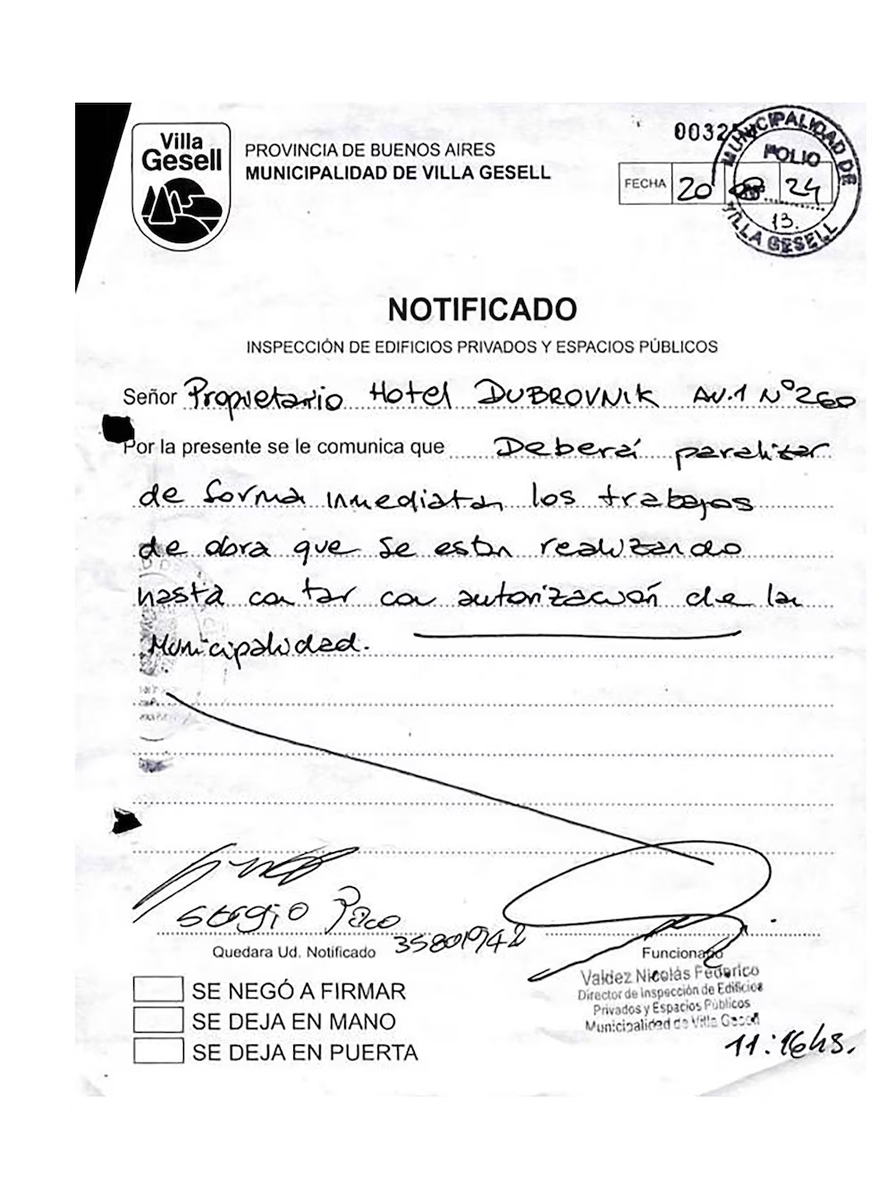 Villa
Gesell
PROVINCIA DE BUENOS AIRES
MUNICIPALIDAD DE VILLA GESELL
0032
FECHA 20 08 24
MUNICIPALIDAD DE
FOLIO
13.
VILLA GESELL
NOTIFICADO
INSPECCIÓN DE EDIFICIOS PRIVADOS Y ESPACIOS PÚBLICOS
Señor Propietario Hotel DUBROVNIK AV.1 N°260
Por la presente se le comunica que Deberá paralizar
de forma inmediata los trabajos
de obra que se estan realizando
hasta contar con autorización de la
Municipalidad.
Sergio
35801942
Quedara Ud. Notificado
Funcionario
Valdez Nicolás Federico
Director de Inspección de Edificios
Privados y Espacios Públicos
Municipalidad de Villa Gesell
SE NEGÓ A FIRMAR
SE DEJA EN MANO
SE DEJA EN PUERTA
11:16hs.